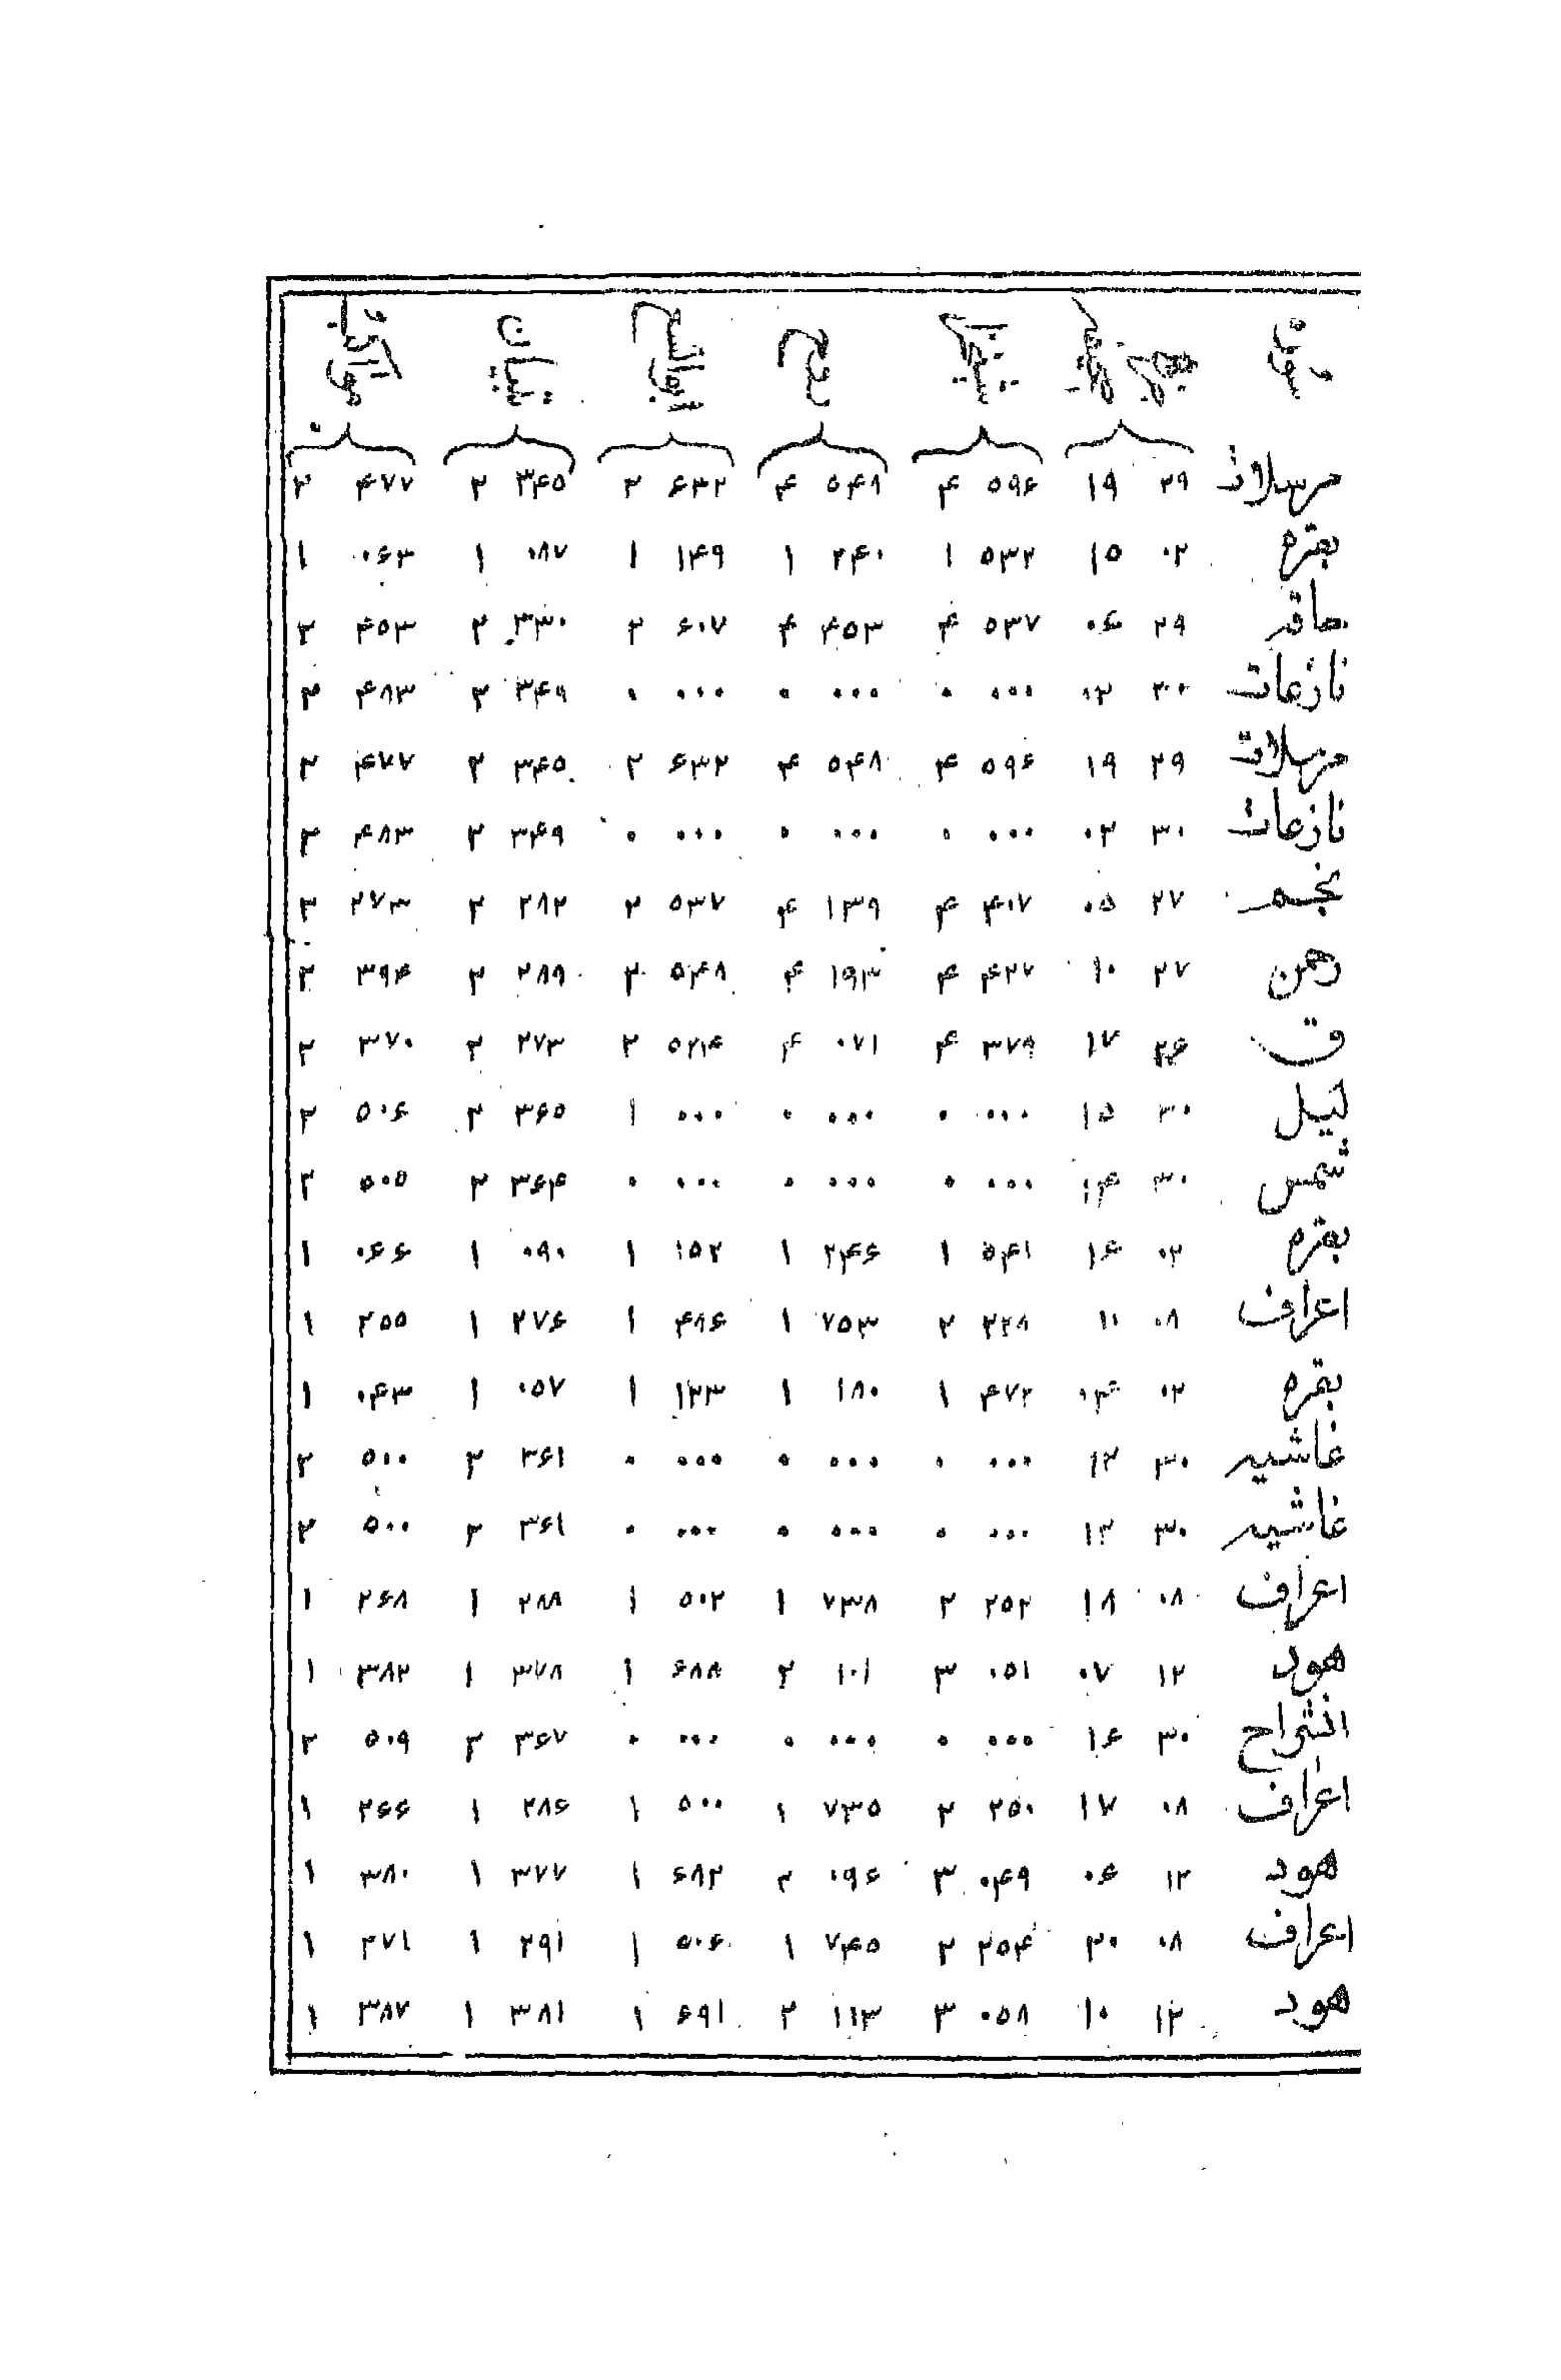 مرسلات ۲۹ ۱۹ ۵۹۶ ۴ ۵۴۸ ۴ ۶۳۲ ۲ ۳۴۵ ۲ ۴۷۷ ۲
بقره ۰۲ ۱۵ ۵۳۲ ۱ ۲۴۰ ۱ ۱۴۹ ۱ ۰۸۷ ۱ ۰۶۳ ۱
حاقه ۲۹ ۰۶ ۵۳۷ ۴ ۴۵۳ ۴ ۶۰۷ ۲ ۳۳۰ ۲ ۴۵۳ ۲
نازعات ۳۰ ۰۲ ۰۰۰ ۰ ۰۰۰ ۰ ۰۰۰ ۰ ۳۴۹ ۲ ۴۸۳ ۲
مرسلات ۲۹ ۱۹ ۵۹۶ ۴ ۵۴۸ ۴ ۶۳۲ ۲ ۳۴۵ ۲ ۴۷۷ ۲
نازعات ۳۰ ۰۲ ۰۰۰ ۰ ۰۰۰ ۰ ۰۰۰ ۰ ۳۴۹ ۲ ۴۸۳ ۲
نجم ۲۷ ۰۵ ۴۰۷ ۴ ۱۳۹ ۴ ۵۳۷ ۲ ۲۸۲ ۲ ۲۷۳ ۲
رحمن ۲۷ ۱۰ ۴۲۷ ۴ ۱۹۳ ۴ ۵۴۸ ۲ ۲۸۹ ۲ ۳۹۴ ۲
ق ۲۶ ۱۷ ۳۷۹ ۴ ۰۷۱ ۴ ۲ ۲۷۳ ۲ ۳۷۰ ۲
لیل ۳۰ ۱۵ ۰۰۰ ۰ ۰۰۰ ۰ ۰۰۰ ۱ ۳۶۵ ۲ ۵۰۶ ۲
شمس ۳۰ ۱۴ ۰۰۰ ۰ ۰۰۰ ۰ ۰۰۰ ۰ ۳۶۴ ۲ ۵۰۵ ۲
بقره ۰۲ ۱۶ ۵۴۱ ۱ ۲۴۶ ۱ ۱۵۲ ۱ ۰۹۰ ۱ ۰۶۶ ۱
اعراف ۰۸ ۱۰ ۲۲۸ ۲ ۷۵۳ ۱ ۴۸۶ ۱ ۲۷۶ ۱ ۲۵۵ ۱
بقره ۰۲ ۰۴ ۴۷۲ ۱ ۱۸۰ ۱ ۱۲۳ ۱ ۰۵۷ ۱ ۰۴۳ ۱
غاشیه ۳۰ ۱۲ ۰۰۰ ۰ ۰۰۰ ۰ ۰۰۰ ۰ ۳۶۱ ۲ ۵۰۰ ۲
غاشیه ۳۰ ۱۲ ۰۰۰ ۰ ۰۰۰ ۰ ۰۰۰ ۰ ۳۶۱ ۲ ۵۰۰ ۲
اعراف ۰۸ ۱۸ ۲۵۲ ۲ ۷۳۸ ۱ ۵۰۲ ۱ ۲۸۸ ۱ ۲۶۸ ۱
هود ۱۲ ۰۷ ۰۵۱ ۳ ۱۰۱ ۲ ۶۸۸ ۱ ۳۷۸ ۱ ۳۸۲ ۱
انشراح ۳۰ ۱۶ ۰۰۰ ۰ ۰۰۰ ۰ ۰۰۰ ۰ ۳۶۷ ۲ ۵۰۹ ۲
اعراف ۰۸ ۱۷ ۲۵۰ ۲ ۷۳۵ ۱ ۵۰۰ ۱ ۲۸۶ ۱ ۲۶۶ ۱
هود ۱۲ ۰۶ ۰۴۹ ۳ ۰۹۶ ۲ ۶۸۲ ۱ ۳۷۷ ۱ ۳۸۰ ۱
اعراف ۰۸ ۲۰ ۲۵۴ ۲ ۷۴۵ ۱ ۵۰۶ ۱ ۲۹۱ ۱ ۲۷۱ ۱
هود ۱۲ ۱۰ ۰۵۸ ۳ ۱۱۳ ۲ ۶۹۱ ۱ ۳۸۱ ۱ ۳۸۷ ۱